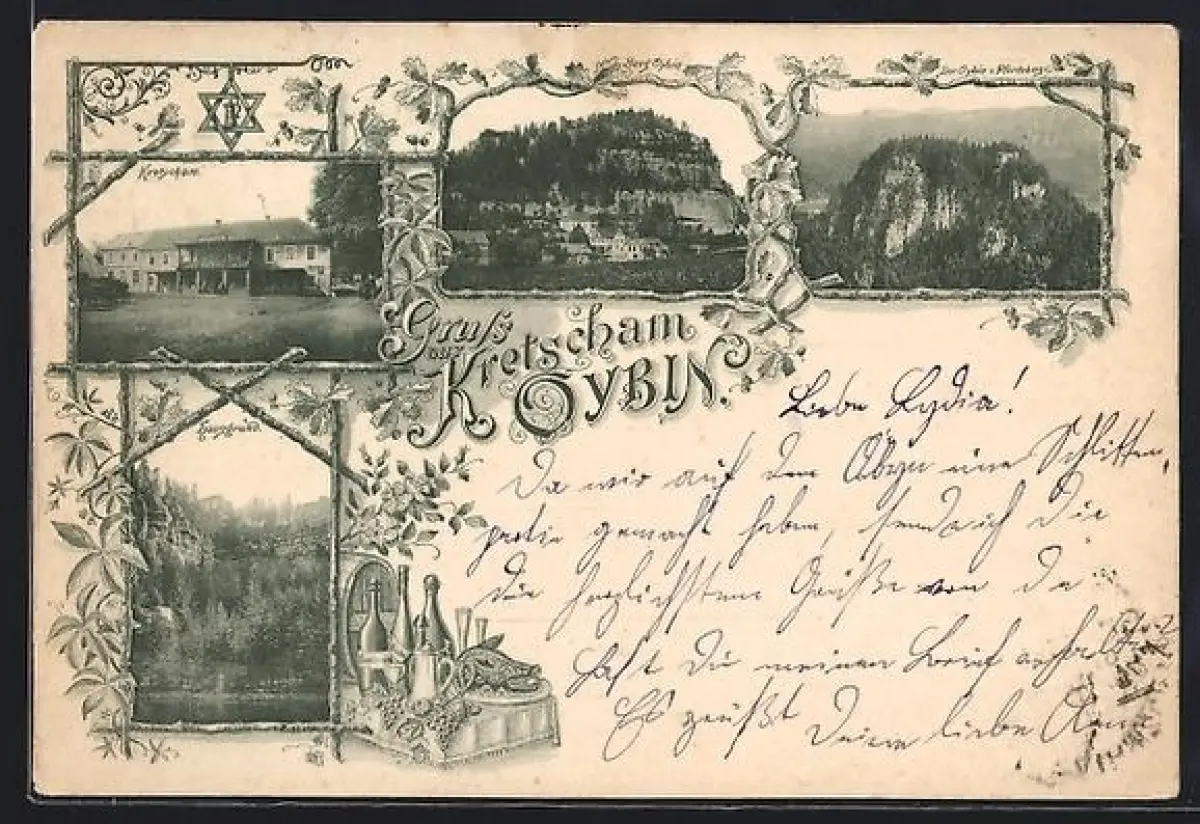 Kretscham.
Berg Oybin
Gruß
aus Kretscham
OYBIN.
Hausgrund.
Liebe Lydia!
Da wir auf dem Oybin eine Schlitten
partie gemacht haben, sende ich Dir
die herzlichsten Grüße von da
Hast Du meinen Brief erhalten
Es grüßt Deine liebe Anna